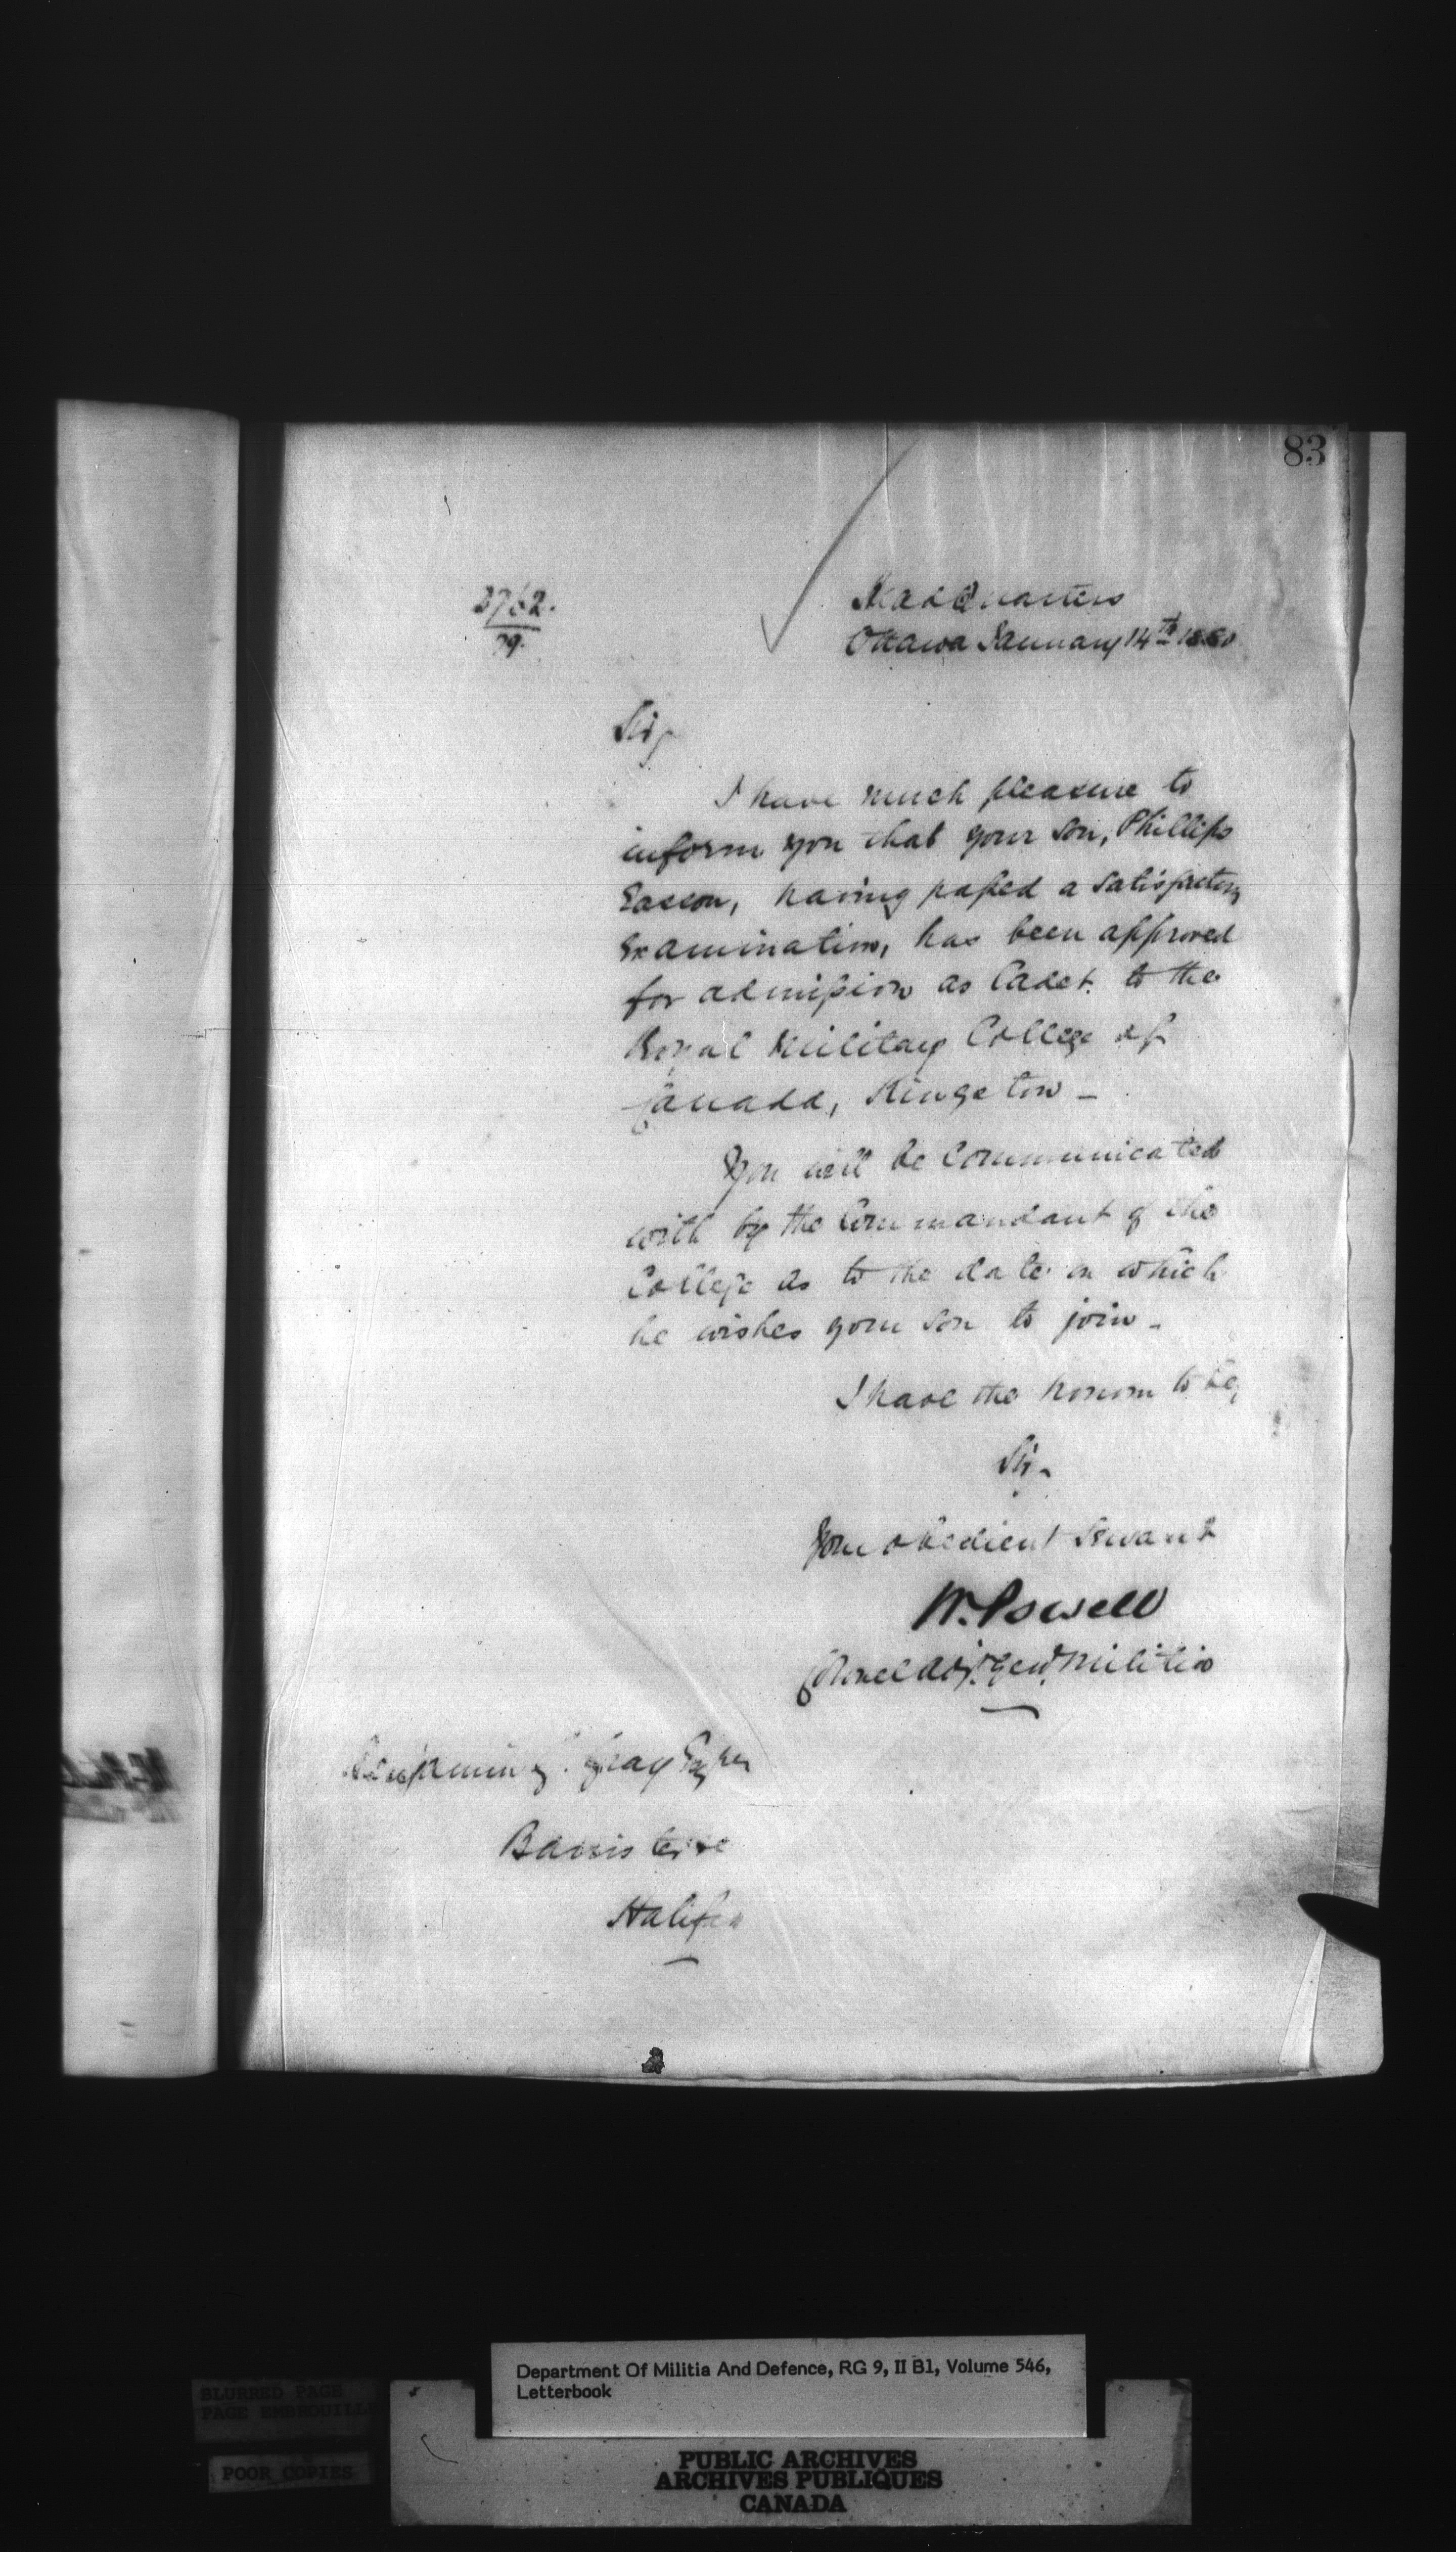 83
3762.
79.
Head Quarters
Ottawa January 14th 1880
Sir,
I have much pleasure to
inform you that your son, Phillips
Easson, having passed a satisfactory
Examination, has been approved
for admission as Cadet to the
Royal Military College of
Canada, Kingston –
You will be communicated
with by the Commandant of the
College as to the date on which
he wishes your son to join –
I have the honour to be,
Sir –
Your obedient Servant
W. Powell
Colonel Adjt. Genl. Militia
Benjamin G. Gray Esquire
Barrister &c
Halifax
Department Of Militia And Defence, RG 9, II B1, Volume 546,
Letterbook
BLURRED PAGE
PAGE EMBROUILLÉ
POOR COPIES
PUBLIC ARCHIVES
ARCHIVES PUBLIQUES
CANADA